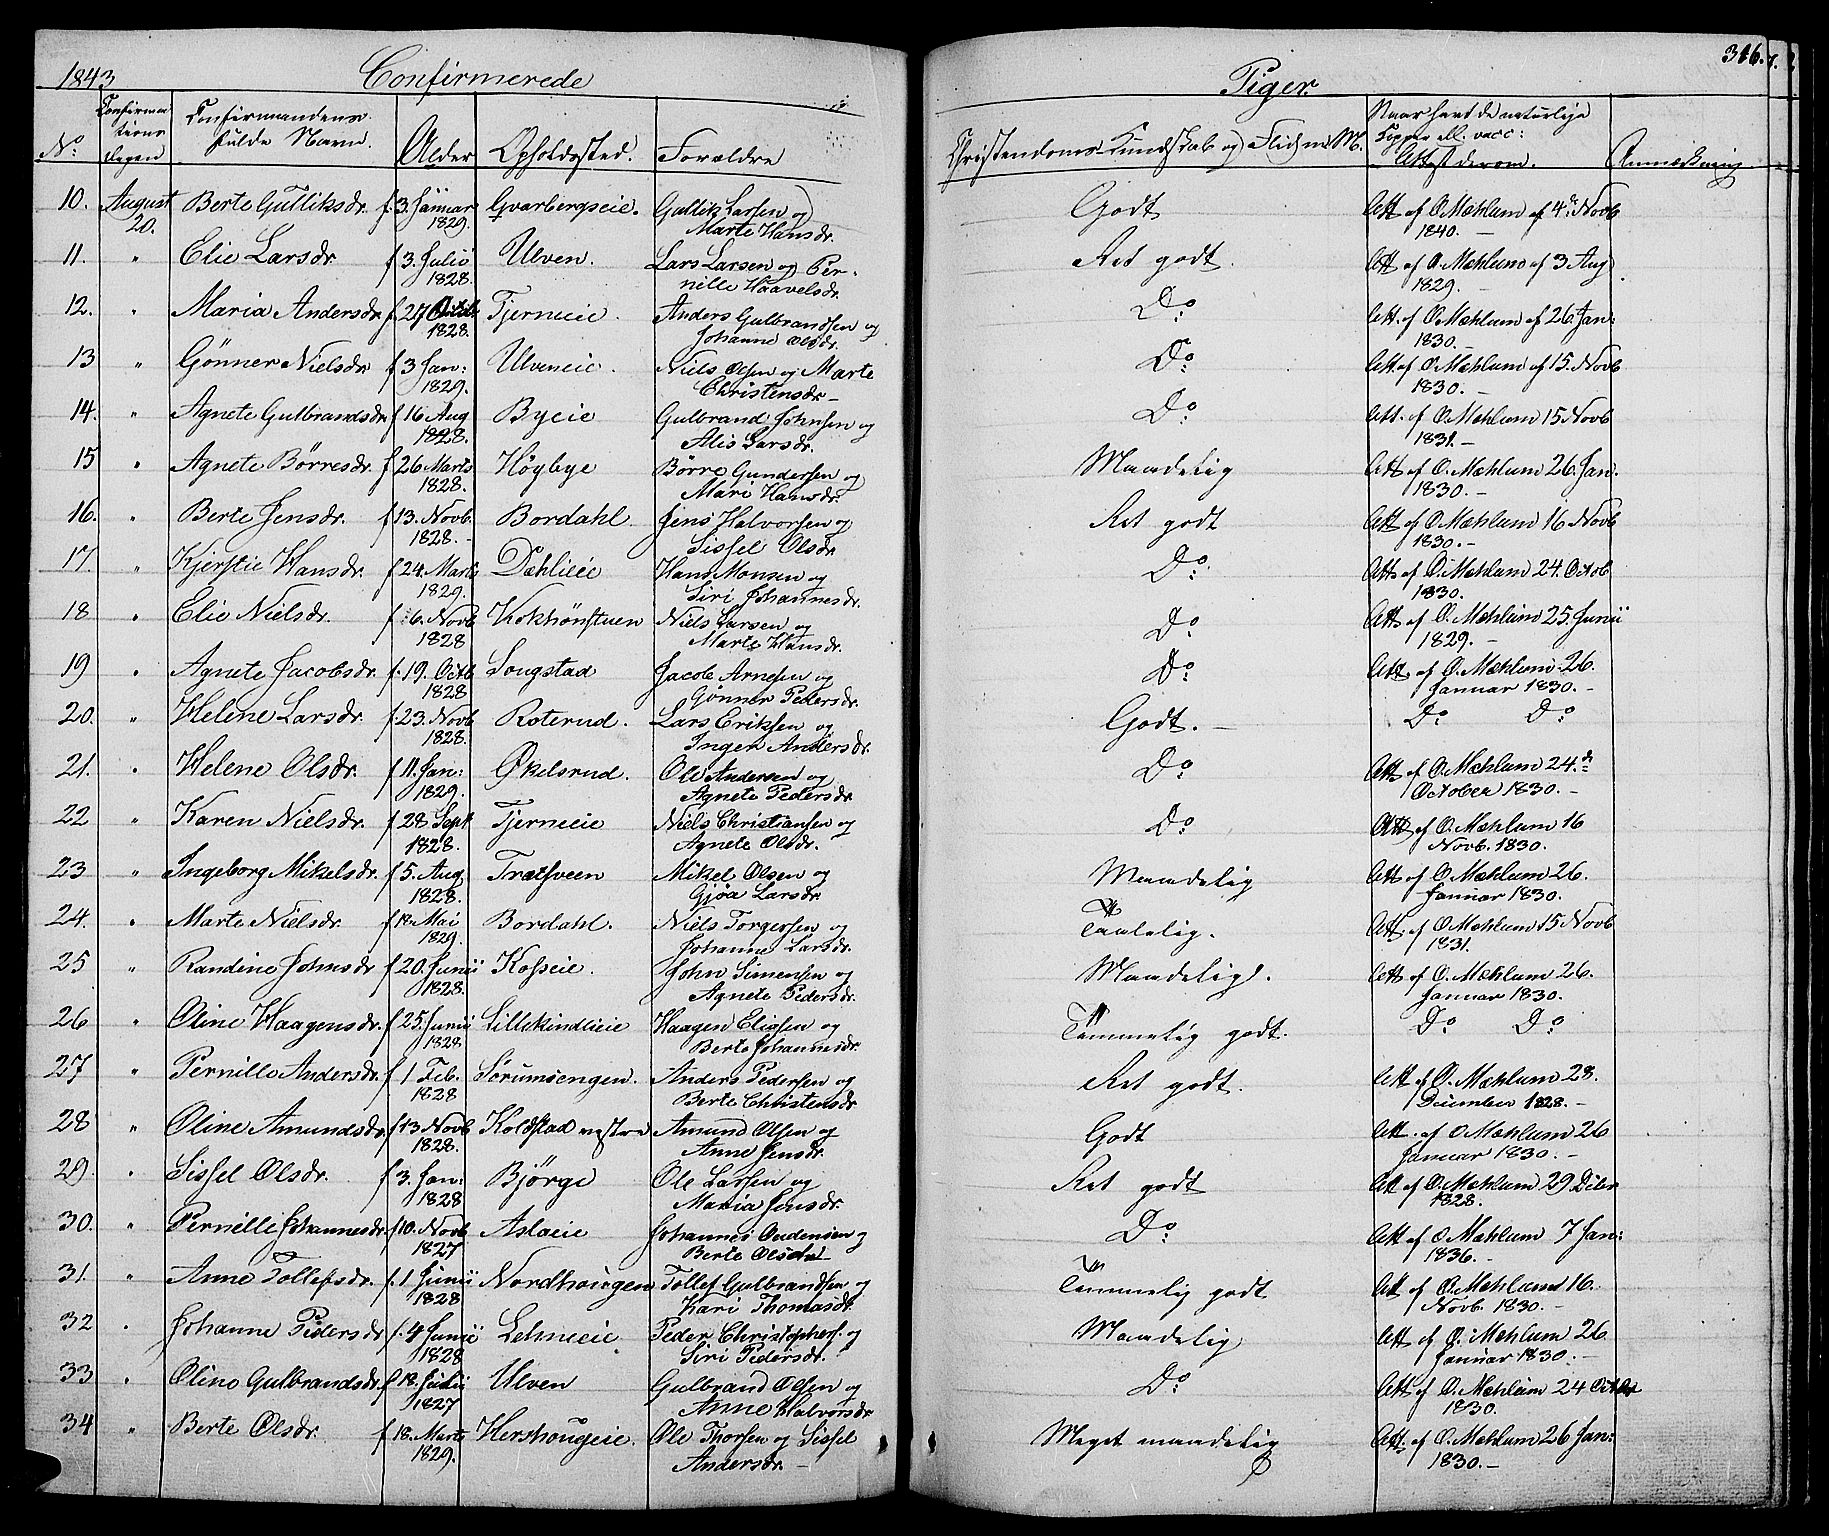 1843 Confirmerede
No. Confirmationsdagen Confirmandens fulde Navn. Alder Opholdssted. Forældre
10. August 20. Berte Gulliksdr. f. 3. Januar 1829. Gvarbergseie. Gullik Larsen og Marte Hansdr.
11. " Elie Larsdr. f 3. Julii 1828. Ulven. Lars Larsen og Pernille Haavelsdr.
12. " Maria Andersdr. f. 27 1828. Tjerneeie. Anders Gulbrandsen og Johanne Olsdr.
13 " Gønner Nielsdr. f 3 Jan: 1829. Ulveneie. Niels Olsen og Marte Christensdr.
14. " Agnete Gulbrandsdr. f. 16 Aug 1828. Byeie Gulbrand Johnsen og Alis Larsdr.
15 " Agnete Børresdr. f 26 Marts 1828. Høybye Børre Gundersen og Mari Hansdr.
16. " Berte Jensdr. f 13. Novb. 1828. Bordahl. Jens Halvorsen og Sissel Olsdr.
17. " Kjerstie Hansdr. f 24. Marts 1829. Dæhlieie Hans Monsen og Siri Johannesdr.
18 " Elie Nielsdr. f 6. Novb 1828 Kokhønstuen Niels Larsen og Marte Hansdr.
19 " Agnete Jacobsdr. f. 19. Octb 1828 Songstad Jacob Arnesen og Gønner Pedersdr.
20. " Helene Larsdr. f. 23. Novb 1828. Roterud. Lars Eriksen og Inger Andersdr.
21. " Helene Olsdr. f 11. Jan: 1829. Økelsrud. Ole Andersen og Agnete Pedersdr.
22 " Karen Nielsdr. f 28 Sept 1828. Tjerneeie Niels Christiansen og Agnete Olsdr.
23 " Ingeborg Mikelsdr. f 5. Aug 1828. Trætsveen Mikel Olsen og Gjøa Larsdr.
24. " Marte Nielsdr. f 18. Mai 1829. Bordahl. Niels Torgersen og Johanne Larsdr.
25 " Randine Johnsdr f 20. Junii 1828. Kosseie. John Simensen og Agnete Pedersdr.
26 " Oline Haagensdr. f 25. Junii 1828 Lillekindlieie Haagen Eliassen og Berte Johannesdr.
27 " Pernille Andersdr. f 1 Feb. 1828 Sørumsengen. Anders Pedersen og Berte Christensdr
28 " Oline Amundsdr. f 13 Novb 1828. Koldstad vestre Amund Olsen og Anne Jensdr.
29 " Sissel Olsdr. f 3. Jan: 1828 Bjørge Ole Larsen og Maria Jensdr.
30. " Pernille Johannesdr. f 10. Novb 1827 Aslaeie Johannes Oudensen og Berte Olsdr
31. " Anne Tollefsdr. f. 1 Junii 1828 Nordhougen Tollef Gulbrandsen og Kari Thomasdr.
32 " Johanne Pedersdr f. 4 Junii 1828 Lehneeie Peder Christophers. og Siri Pedersdr.
33 " Oline Gulbrandsdr. f 18. Julii 1827 Ulven Gulbrand Olsen og Anne Halvorsdr
34 " Berte Olsdr. f 18. Marts 1829. Hershougeie. Ole Thorsen og Sissel Andersdr.
316.
Piger.
Christendoms-Kundskab og Flid m M. Naar havt de naturlige Kopper ell. vacc: Attest derom. Anmærkning
Godt Att af O. Mæhlum af 4de Novb 1840.
Ret godt. Att af O. Mæhlum af 3 Aug 1829.
Do. Att. af O. Mæhlum af 26. Jan: 1830.
Do. Att. af O. Mæhlum af 15. Novb 1830.
Do. Att. af O. Mæhlum 15 Novb 1831.
Maadelig Att af O. Mæhlum 26. Jan. 1830.
Ret godt Att af O. Mæhlum 16 Novb 1830.
Do. Att. af O. Mæhlum 24. Octob 1830.
Do. Att. af O. Mæhlum 25. Junii 1829.
Do. Att. af O. Mæhlum 26. Januar 1830.
Godt. Do. Do.
Do. Att. af O. Mæhlum 24. de October 1830.
Do. Att. af O. Mæhlum 16 Novb. 1830.
Maadelig Att. af O. Mæhlum 26. Januar 1830.
Taalelig. Att. af O. Mæhlum 15 Novb 1831.
Maadeligt. Att. af O. Mæhlum 26. Januar 1830.
Temmelig godt. Do. Do.
Ret godt. Att. af O. Mæhlum 28. December 1828.
Godt Att. af O Mæhlum 26 Januar 1830.
Ret godt Att af O. Mæhlum 29 Dcbr 1828.
Do. Att af O Mæhlum 7 Jan: 1836.
Temmelig godt Att af O. Mæhlum 16. Novb. 1830.
Maadelig Att. af O. Mæhlum 26 Januar 1830.
Do. Att. af O. Mæhlum 24 October 1830.
Meget maadelig Att. af O. Mæhlum 26 Jan: 1830.